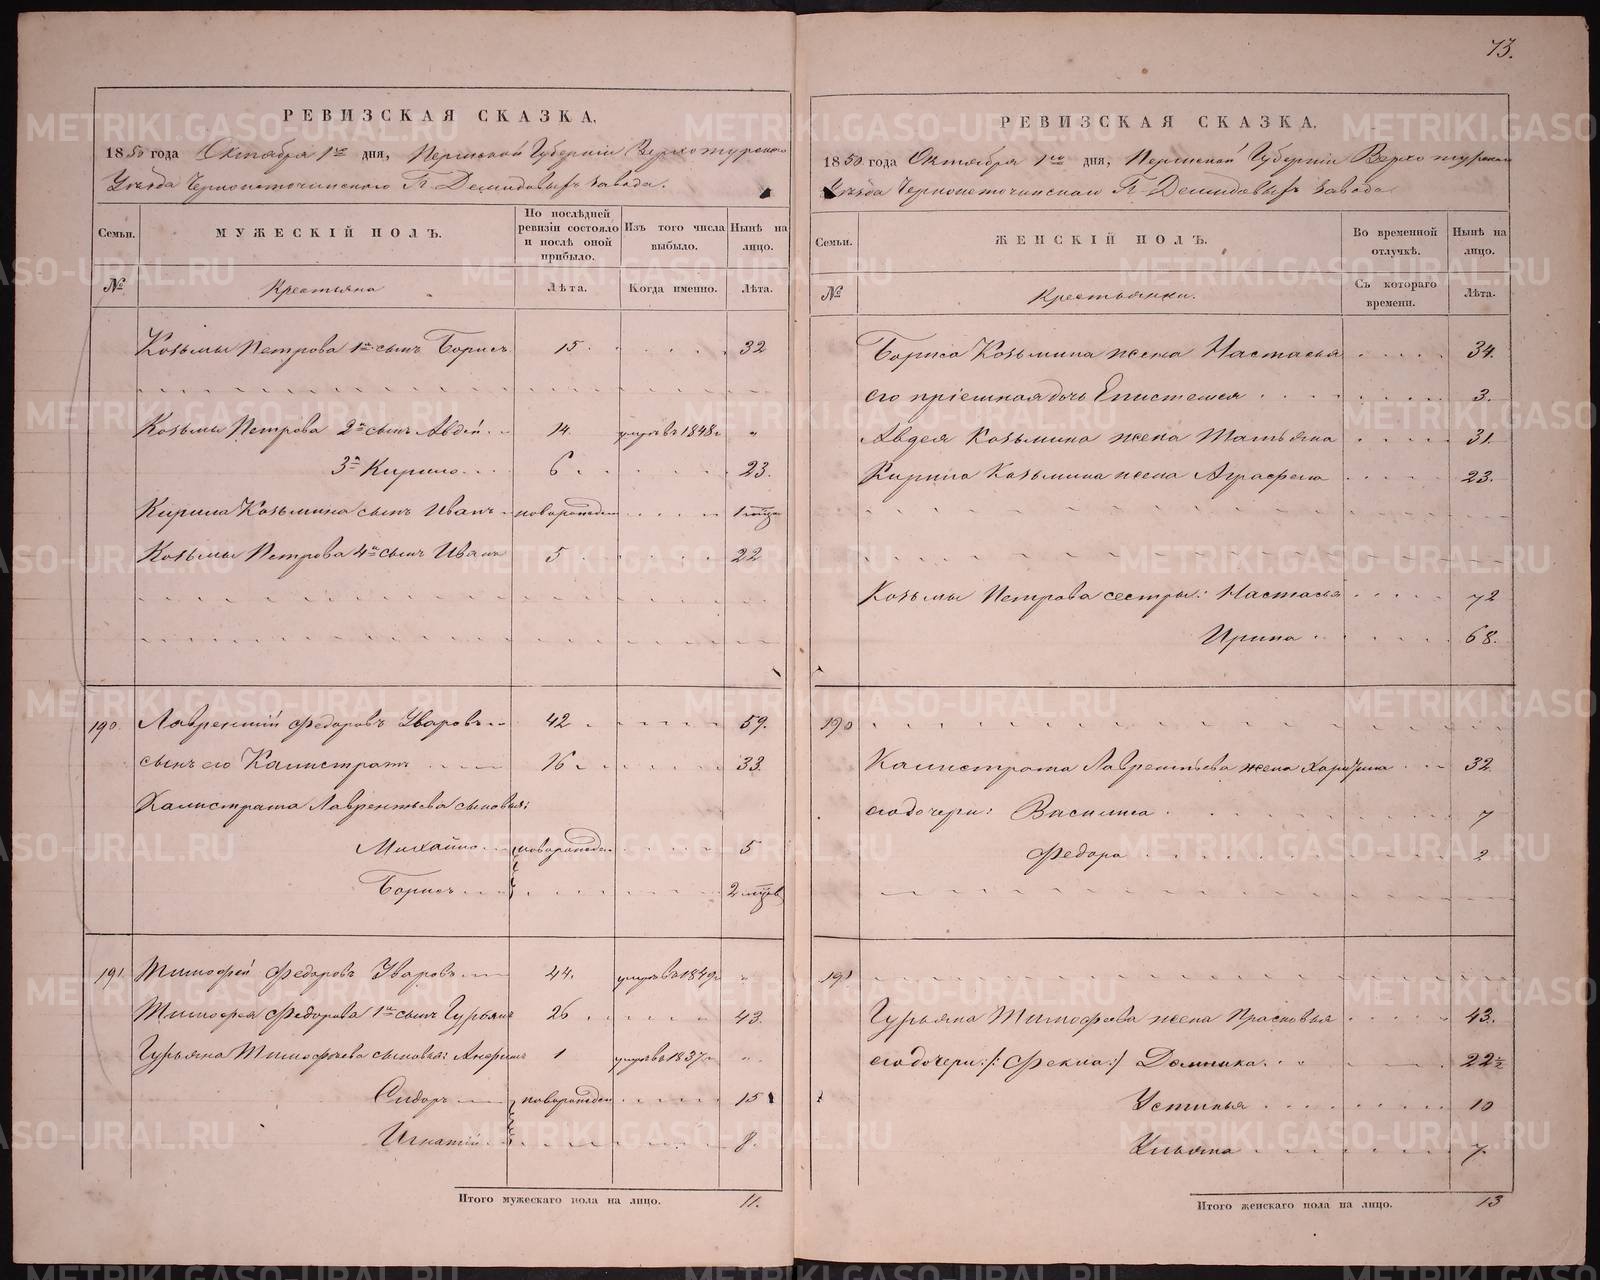 73.
РЕВИЗСКАЯ СКАЗКА.
1850 года Октября 1го дня, Пермской Губерніи Верхотурскаго
Уѣзда Черноисточинскаго Г. Демидовыхъ завода.
Семьи.
МУЖЕСКІЙ ПОЛЪ.
По послѣдней ревизіи состояло и послѣ оной прибыло.
Изъ того числа выбыло.
Нынѣ на лицо.
№
Крестьяна
Лѣта.
Когда именно.
Лѣта.
Козьмы Петрова 1й сынъ Борисъ 15 32
Козьмы Петрова 2й сынъ Авдѣй 14. умръ въ 1848г "
3й Кирило 6 23.
Кирила Козьмина сынъ Иванъ новорожден 1 мѣсяц
Козьмы Петрова 4й сынъ Иванъ 5 22
190 Лаврентій Федоровъ Уваровъ 42 59.
сынъ его Калистратъ 16 33
Калистрата Лаврентьева сыновья:
Михайло новорожден 5
Борисъ 2 мѣсяцев
191 Тимофей Федоровъ Уваровъ 44. умръ въ 1849г "
Тимофея Федорова 1й сынъ Гурьянъ 26 43.
Гурьяна Тимофѣева сыновья: Анфимъ 1 умръ въ 1837г "
Сидоръ новорожден 15
Игнатій 8.
Итого мужескаго пола на лицо. 11.
РЕВИЗСКАЯ СКАЗКА.
1850 года Октября 1го дня, Пермской Губерніи Верхотурскаго
Уѣзда Черноисточинскаго Г. Демидовыхъ завода
Семьи.
ЖЕНСКІЙ ПОЛЪ.
Во временной отлучкѣ.
Нынѣ на лицо.
№
Крестьянки.
Съ котораго времени.
Лѣта.
Бориса Козьмина жена Настасья 34.
его пріемная дочь Епистемея 3.
Авдея Козьмина жена Татьяна 31.
Кирила Козьмина жена Аграфена 23.
Козьмы Петрова сестры: Настасья 72
Ирина 68.
190
Калистрата Лаврентьева жена Харитина 32.
его дочери: Василиса 7
Федора 2
191
Гурьяна Тимофеева жена Прасковья 43.
его дочери: /: Фекла :/ Домника 22½
Устинья 10
Ульяна 7.
Итого женскаго пола на лицо. 13
METRIKI.GASO-URAL.RU